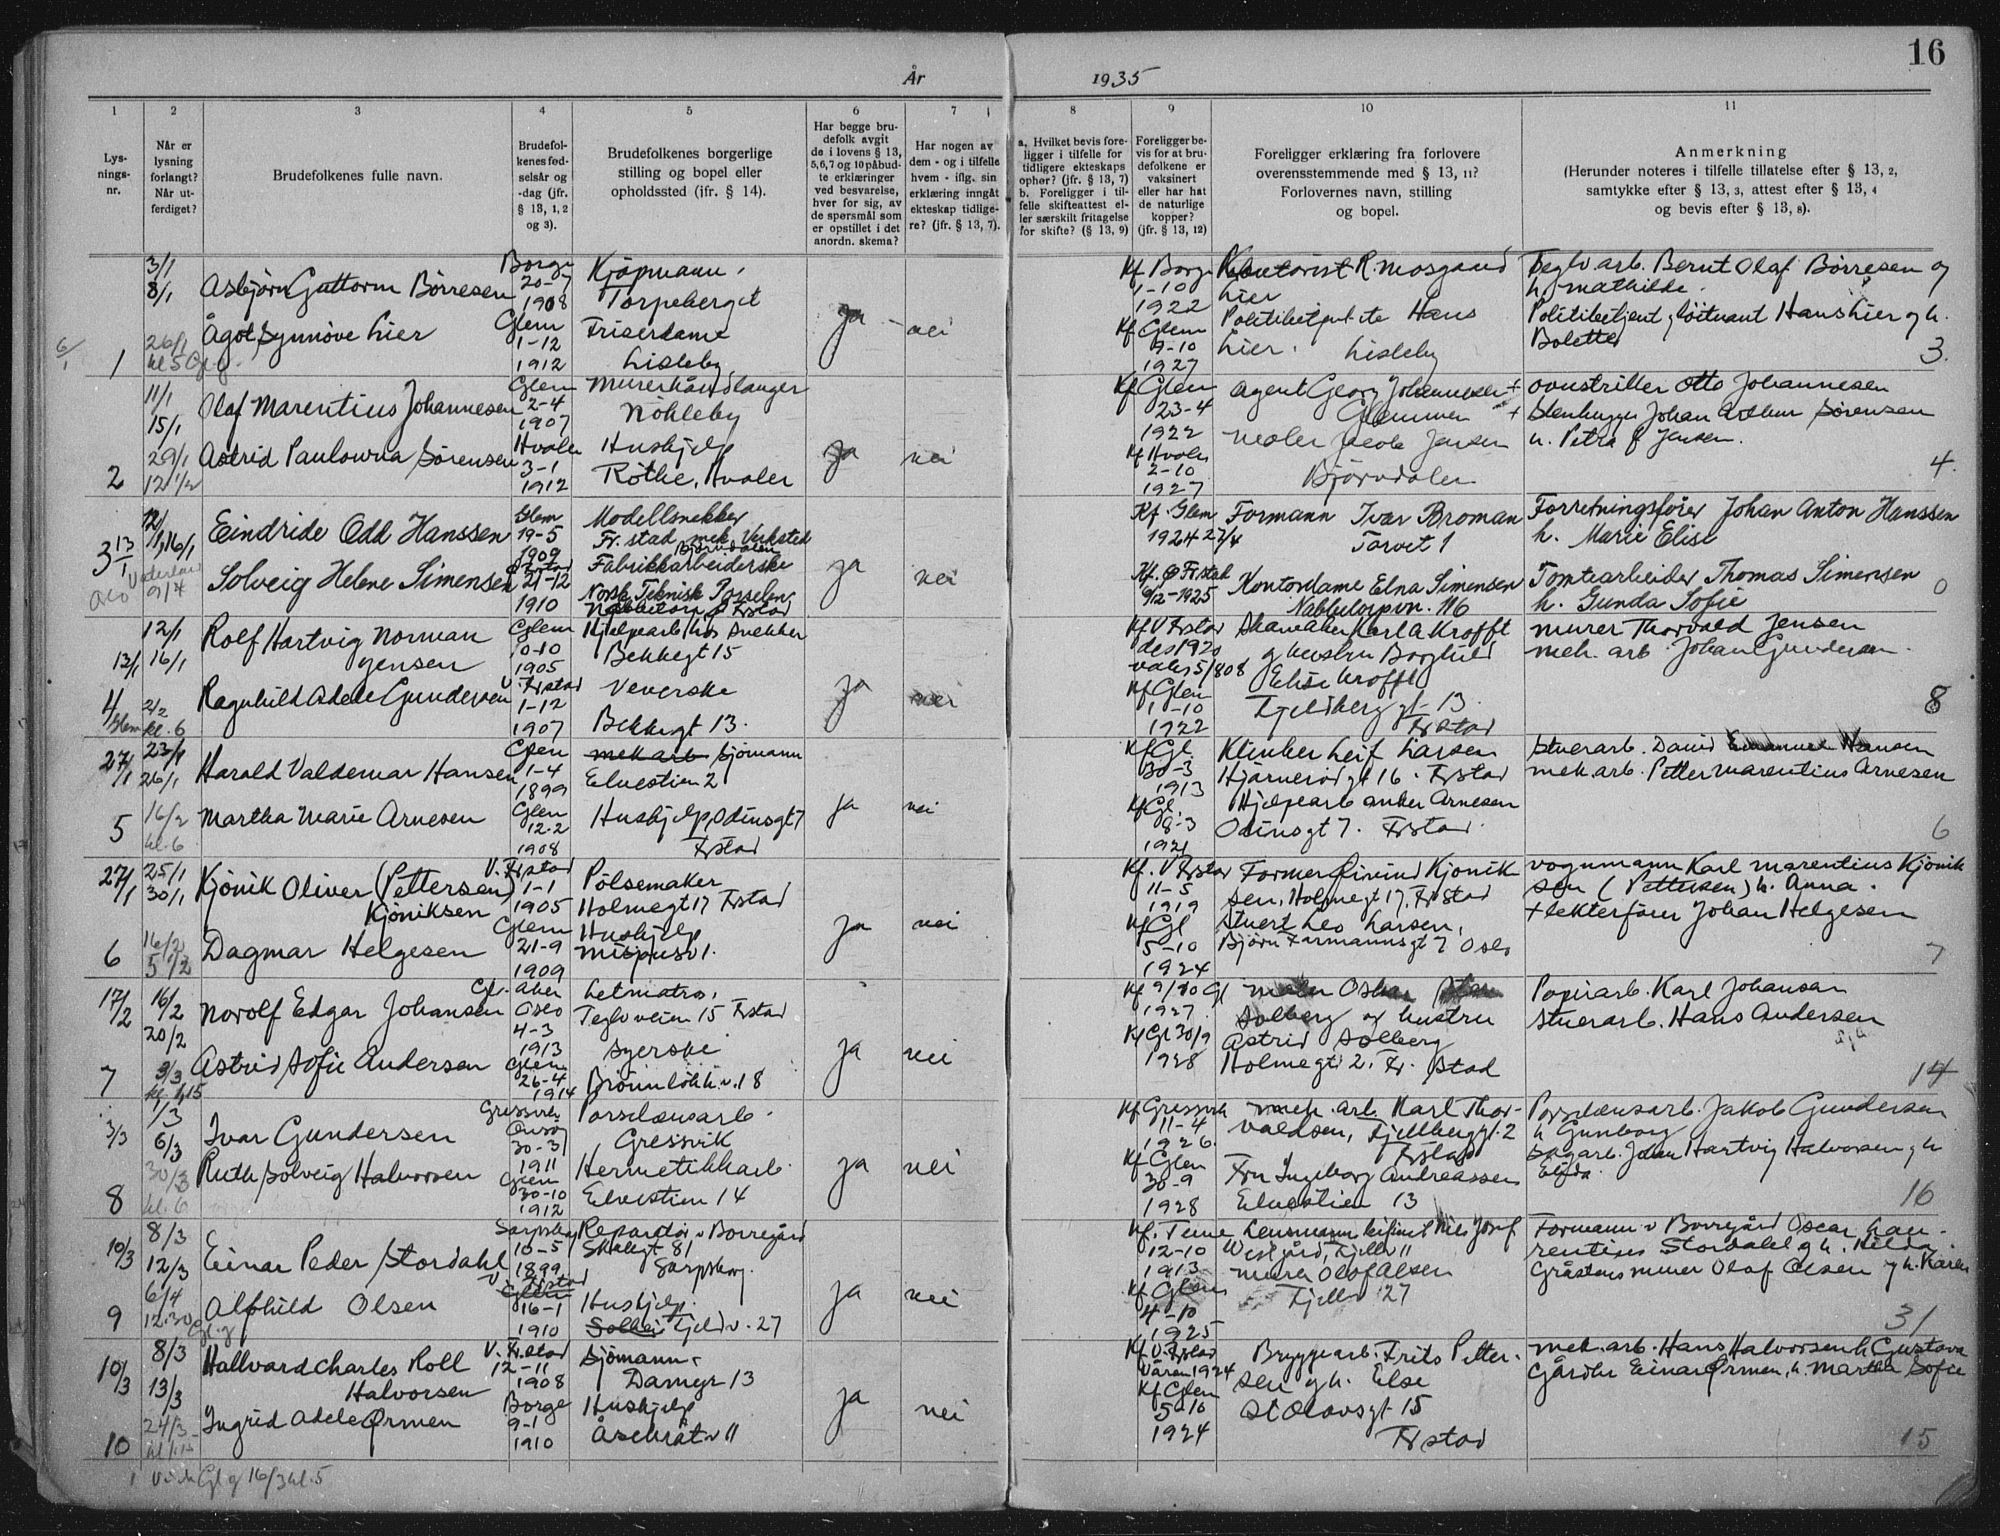 16
År 1935
1 2 3 4 5 6 7 8 9 10 11
Lys-
nings-
nr.
Når er
lysning
forlangt?
Når ut-
ferdiget?
Brudefolkenes fulle navn.
Brudefol-
kenes fød-
selsår og
-dag (jfr.
§ 13, 1, 2
og 3).
Brudefolkenes borgerlige
stilling og bopel eller
opholdssted (jfr. § 14).
Har begge bru-
defolk avgit
de i lovens § 13,
5, 6, 7 og 10 påbud-
te erklæringer
ved besvarelse,
hver for sig, av
de spørsmål som
er opstillet i det
anordn. skema?
Har nogen av
dem - og i tilfelle
hvem - iflg. sin
erklæring inngåt
ekteskap tidlige-
re? (jfr. § 13, 7).
a. Hvilket bevis fore-
ligger i tilfelle for
tidligere ekteskaps
ophør? (jfr. § 13, 7)
b. Foreligger i til-
felle skifteattest el-
ler særskilt fritagelse
for skifte? (§ 13, 9)
Foreligger be-
vis for at bru-
defolkene er
vaksinert
eller har hat
de naturlige
kopper?
(jfr. § 13, 12)
Foreligger erklæring fra forlovere
overensstemmende med § 13, 11?
Forlovernes navn, stilling
og bopel.
Anmerkning
(Herunder noteres i tilfelle tillatelse efter § 13, 2,
samtykke efter § 13, 3, attest efter § 13, 4
og bevis efter § 13, 8).
6/1
1
3/1
8/1
26/1
kl 5
Asbjørn Guttorm Børresen
Ågot Synnøve Lier
Borge
20-7
1908
Glem
1-12
1912
Kjøpmann,
Torpeberget
Friserdame
Lisleby
ja
nei
Kf Borge
1-10
1922
Kf Glem
1927
Kontorist R. Mosgaard
Lier
Politibetjent Hans
Lier. Lisleby
Teglv arb. Bernt Olaf Børresen og
h. Mathilde.
Politibetjent, løitnant Hans Lier g h.
Bolette
3.
2
11/1
15/1
29/1
12 1/2
Olaf Marentius Johannesen
Astrid Paulowna Sørensen
Glem
2-4
1907
Hvaler
3-1
1912
Murerhåndlanger
Nøkleby
Hushjelp
Røthe, Hvaler
ja
nei
Kf Glem
23-4
1922
Kf Hvaler
2-10
1927
Agent Georg Johannesen +
Glemmen +
Maler Jacob Jensen
Bjørndalen
Otto Johannesen
Stenhugger Johan Arthur Sørensen
h. Petra f Jensen.
4.
3 13/1
12/1
16/1
9/4
Eindride Odd Hanssen
Solveig Helene Simensen
Glem
19-5
1909
21-12
1910
Modellsnekker
Fr.stad mek Verksted
Bjørndalen
Fabrikkarbeiderske
Norsk Teknisk Porselen
ja
nei
Kf. Glem
1924 27/4
Kf. Ø Frstad
6/12-1925
Formann Ivar Broman
Torvet 1
Kontordame Elna Simensen
Nabbetorpvn. 116
Forretningsfører Johan Anton Hanssen
h. Marie Elise
Tomtearbeider Thomas Simensen
h. Gunda Sofie
0
12/1
4
12/1
16/1
2/2
kl. 6
Rolf Hartvig Norman
Jensen
Ragnhild Adele Gundersen
Glem
10-10
1905
V. Frstad
1-12
1907
Hjelpearb hos snekker
Bekkegt 15
Veverske
Bekkegt 13.
ja
nei
Kf V Frstad
1920
Kf Glem
1-10
1922
Skomaker Karl A Krofft
g hustru Borghild
Elise Krofft
Fjeldberg gt. 13
Frstad
Murer Thorvald Jensen
Mek. arb. Johan Gundersen
8
27/1
5
23/1
26/1
16/2
kl. 6
Harald Valdemar Hansen
Martha Marie Arnesen
Glem
1-4
1899
Glem
12-2
1908
mek arb Sjømann
Elvestien 2
Hushjelp, Odinsgt 7
Frstad
ja
nei
Kf Gl
30-3
1913
Kf Gl.
8-3
1921
Klinker Leif Larsen
Hjarnerød gt 16. Frstad
Hjelpearb Anker Arnesen
Odinsgt 7. Frstad.
Stuerarb. David Hansen
mek arb. Petter Marentius Arnesen
6
27/1
6
25/1
30/1
16/2
Kjönik Oliver (Pettersen)
Kjöniksen
Dagmar Helgesen
V. Frstad
1-1
1905
Glem
21-9
1909
Pølsemaker
Holmegt 17 Frstad
Hushjelp
ja
nei
Kf. V Frstad
11-5
1919
Kf Gl
5-10
1924
Former Eivind Kjönik
sen, Holmegt 17, Frstad
Stuert Leo Larsen,
Bjørn Farmannsgt 7 Oslo
Vognmann Karl Marentius Kjönik
sen (Pettersen) h. Anna.
+ lekterfører Johan Helgesen
7
17/2
7
16/2
20/2
3/3
Norolf Edgar Johansen
Astrid Sofie Andersen
Gl. Aker
Oslo
4-3
1913
Glem
26-4
1914
Letmatros.
Teglveien 15 Frstad
Syerske
Brönnløkk v. 18
ja
nei
Kf 9/10 Gl
1927
Kf Gl 30/9
1928
Maler Oskar
Solberg og hustru
Astrid Solberg
Holmegt 2. Fr. stad
Papirarb. Karl Johansen
Stuerarb. Hans Andersen
14
3/3
8
1/3
6/3
30/3
kl. 6
Ivar Gundersen
Ruth Solveig Halvorsen
Gressvik
Onsøy
30-3
1911
Glem
30-10
1912
Porselænsarb.
Gressvik
Hermetikkarb.
Elvestien 14
ja
nei
Kf Gressvik
11-4
1926
Kf Glem
30-9
1928
mek. arb. Karl Thor-
valdsen, Fjellberggt. 2
Frstad
Fru Ingeborg Andreassen
Elvestien 13
Porselænsarb. Jakob Gundersen
h Gunborg
Sagarb. Johan Hartvig Halvorsen g h
Elfda
16
10/3
9
8/3
12/3
6/4
12.30
Einar Peder Stordahl
Alfhild Olsen
Sarpsborg
10-5
1899
V. Frstad
16-1
1910
Reparatør v Borregård
Skolegt 81
Sarpsborg.
Hushjelp.
Fjeld v. 27
ja
nei
Kf. Tune
12-10
1913
Kf. Glem
4-10
1925
Nils Josef
Vestgård, Fjellv 11
Murer Olof Olsen
Fjellv 27
Formann v Borregård Oscar Lau-
rentius Stordahl g h. Hilda
Gråstensmurer Olaf Olsen g h. Karen
31
10/3
10
8/3
13/3
24/3
Hallvard Charles Roll
Halvorsen
Ingrid Adele Ørmen
V. Fr.stad
12-11
1908
Borge
9-1
1910
Sjømann.
Damgr 13
Hushjelp
ja
nei
Kf V. Frstad
Våren 1924
Kf Glem
5-10
1924
Bryggearb. Frits Petter-
sen g h. Else
St Olavsgt 15
Frstad
mek. arb. Hans Halvorsen h Gustava
Gårdbr Einar Ørmen, h Martha Sofie
15
16/3 kl. 5